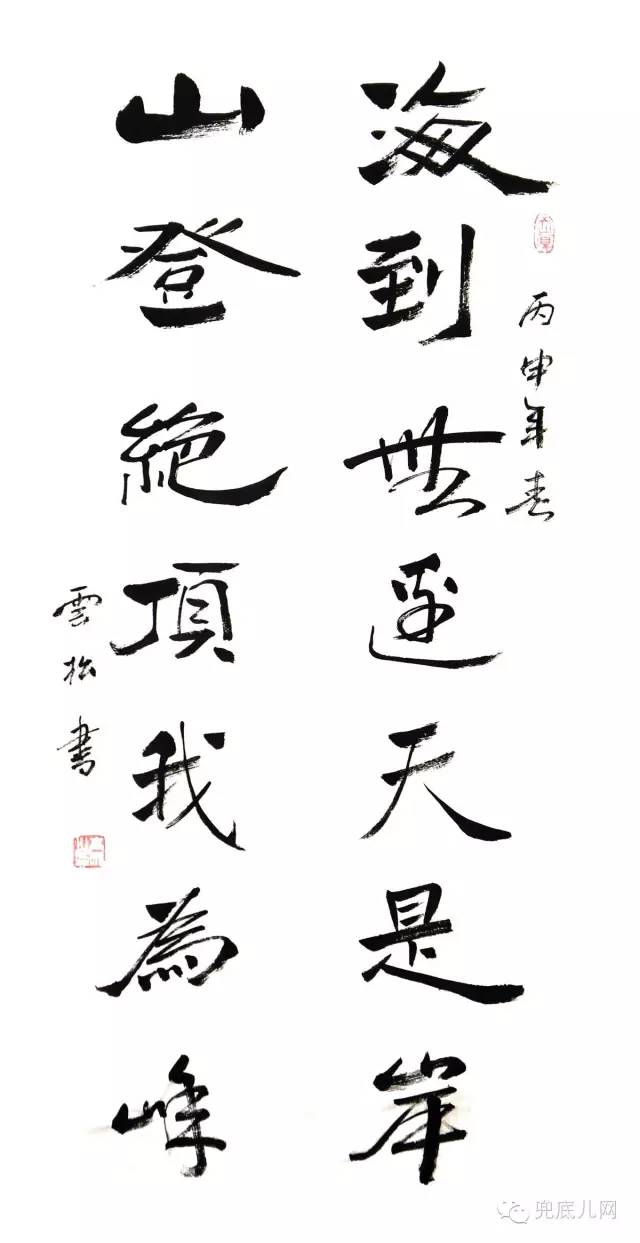 丙申年春
海到無邊天是岸
山登絶頂我為峰
雲松書
兜底儿网